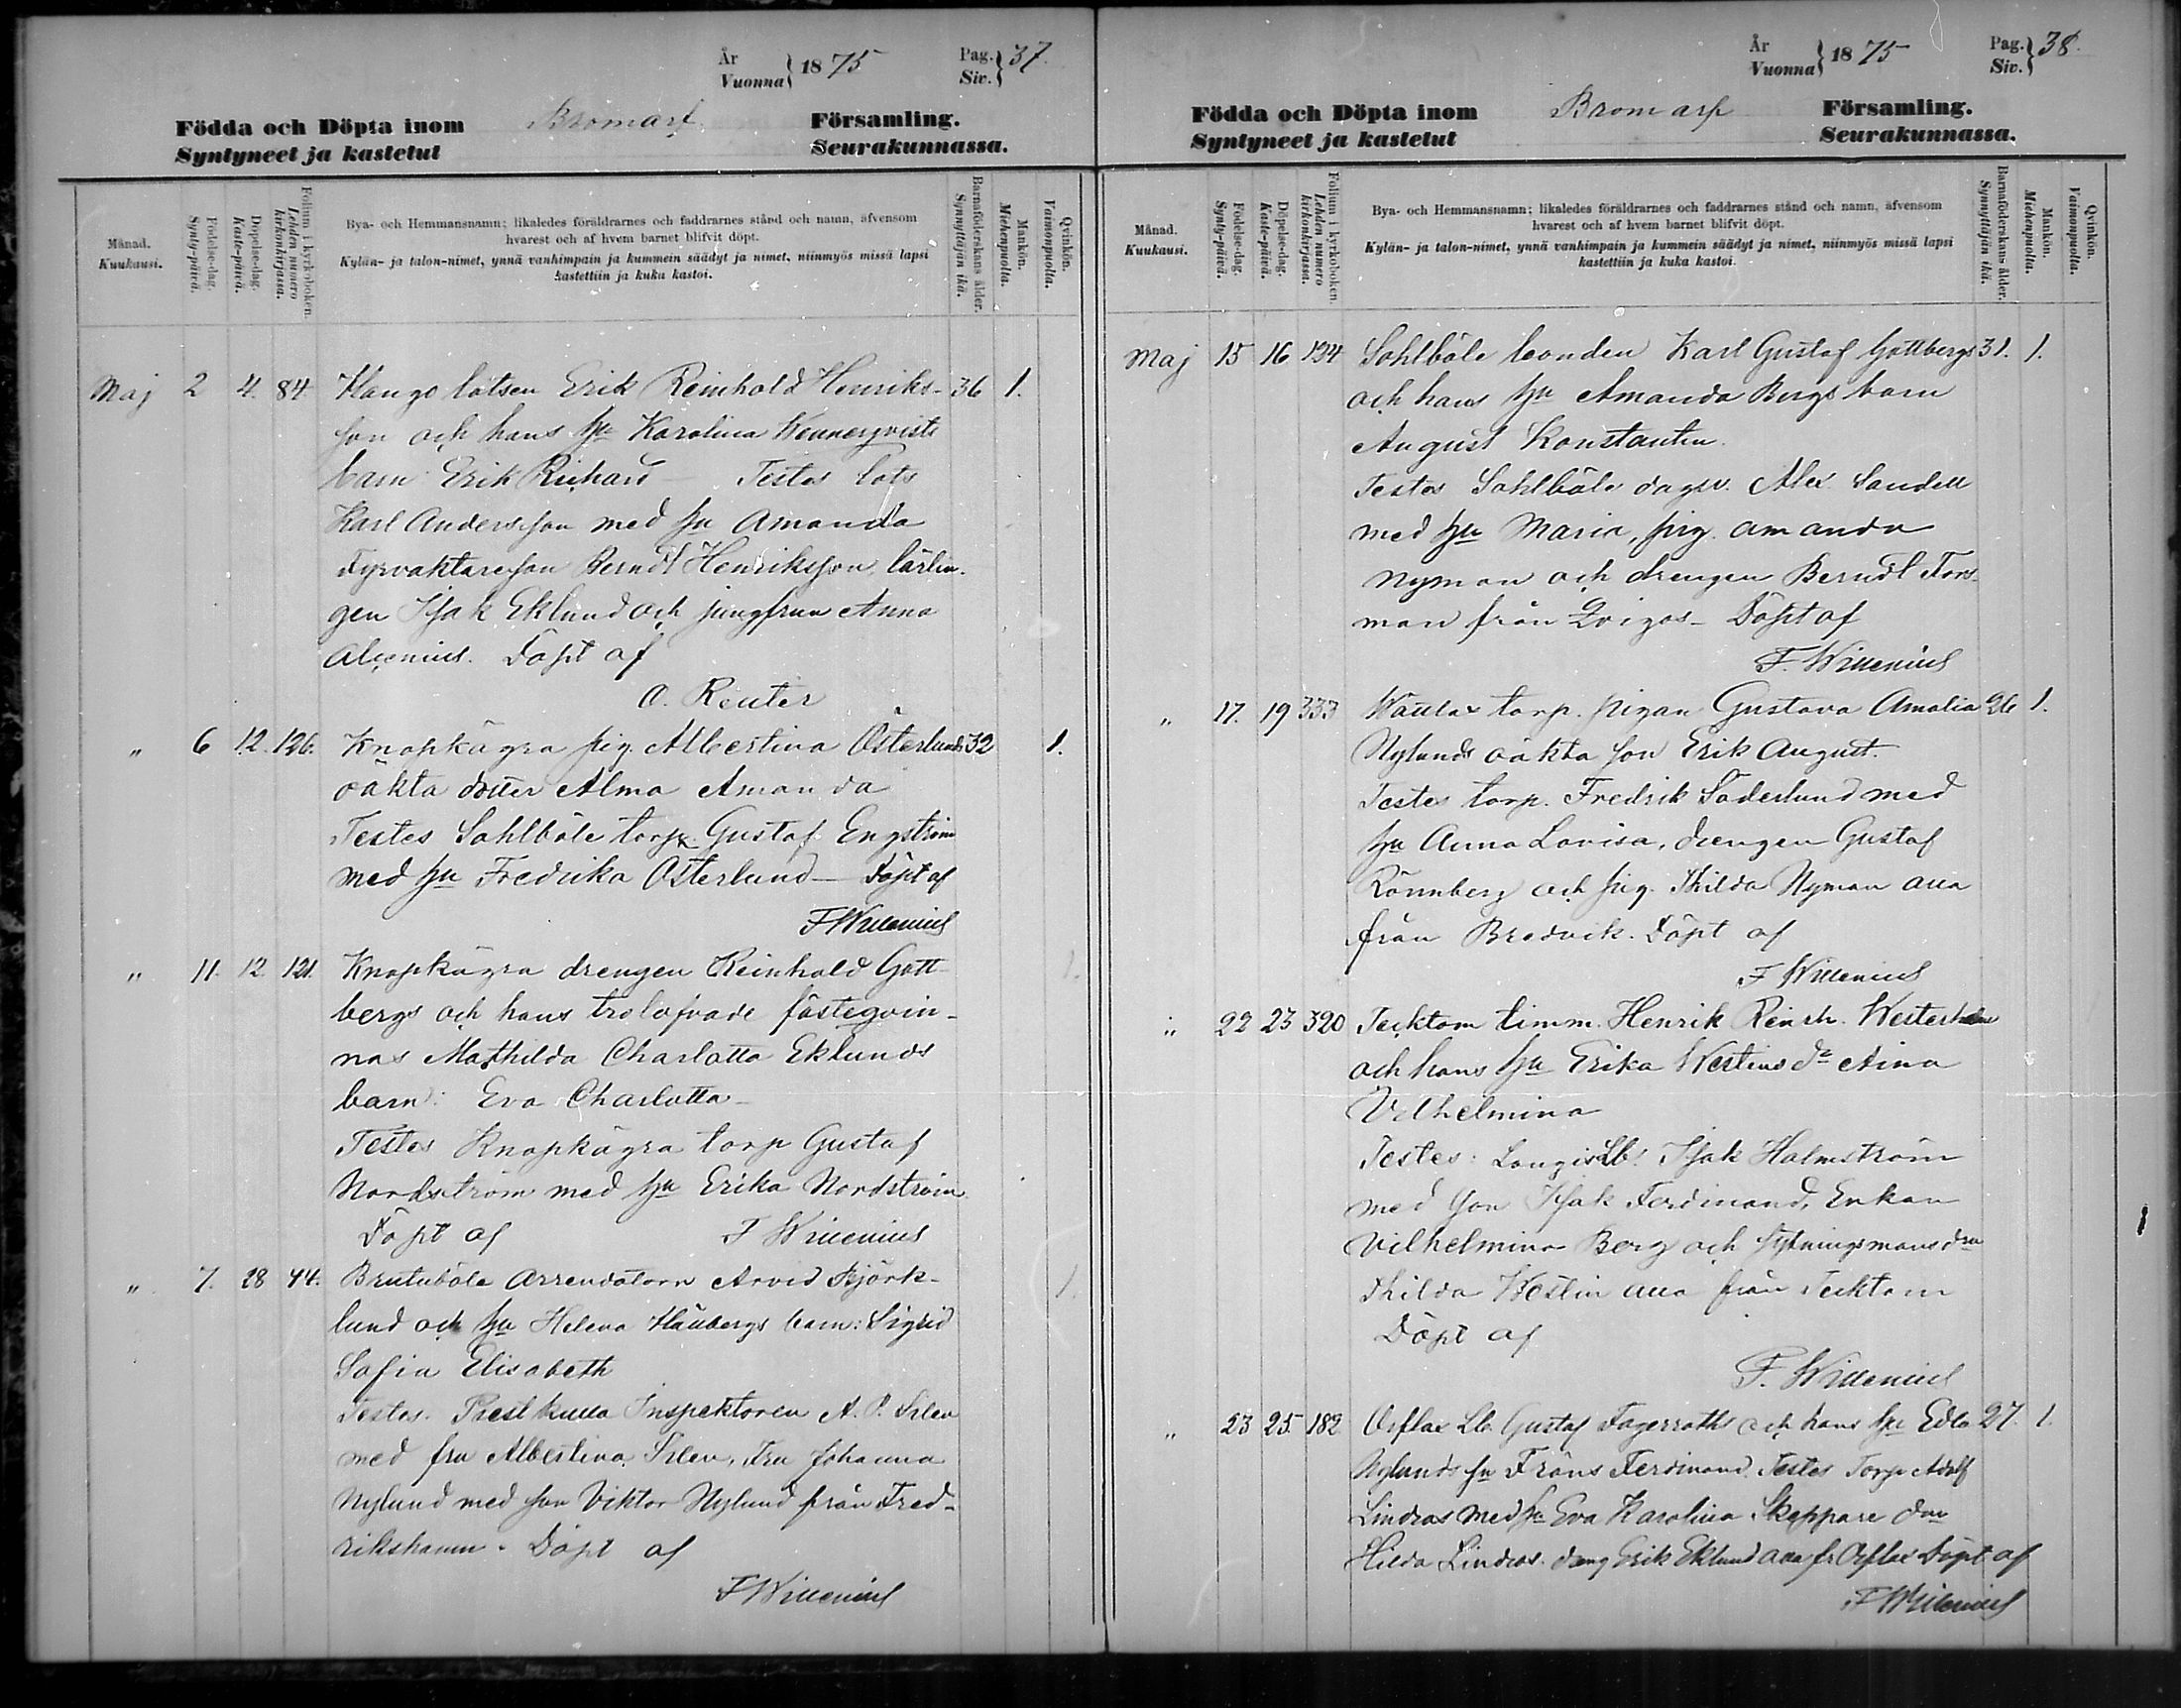 År
Vuonna } 1875
Pag.
Siv. } 37.
Födda och Döpta inom Bromarf Församling.
Syntyneet ja kastetut Seurakunnassa.
Månad.
Kuukausi.
Födelse-dag.
Synty-päivä.
Döpelse-dag.
Kaste-päivä.
Folium i kyrkoboken.
Lehden numero kirkonkirjassa.
Bya- och Hemmansnamn; likaledes föräldrarnes och faddrarnes stånd och namn, äfvensom
hvarest och af hvem barnet blifvit döpt.
Kylän- ja talon-nimet, ynnä vanhimpain ja kummein säädyt ja nimet, niinmyös missä lapsi
kastettiin ja kuka kastoi.
Barnaföderskans ålder.
Synnyttäjän ikä.
Mankön.
Miehenpuolta.
Qvinkön.
Vaimonpuolta.
Maj 2 4. 84 Hangö lotsen Erik Reinhold Henriks- 36 1.
son och hans hu Karolina Wennerqvists
barn: Erik Richard – Testes lots
Karl Andersson med hu Amanda
Fyrvaktareson Berndt Henriksson, lärlin-
gen Isak Eklund och jungfrun Anna
Alcenius. Döpt af
O. Reuter
" 6 12. 126. Knapkägra pig. Albertina Österlunds 32 1.
oäkta dotter Alma Amanda
Testes Sahlböle torp. Gustaf Engström
med hu Fredrika Österlund – Döpt af
F Willenius
" 11. 12 121. Knapkägra drengen Reinhold Gott-
bergs och hans trolofvade fästeqvin- 1.
nas Mathilda Charlotta Eklunds
barn: Eva Charlotta –
Testes Knapkägra torp Gustaf
Nordström med hu Erika Nordström
Döpt af F Willenius
" 7. 28 44. Brutuböle Arrendatorn Arvid Björk- 1.
lund och hu Helena barn: Sigrid
Sofia Elisabeth
Testes. Prestkulla Inspektoren A. P. Silen
med fru Albertina Silen, Fru Johanna
Nylund med son Viktor Nylund från Fred-
rikshamn. Döpt af
F Willenius
År
Vuonna } 1875
Pag.
Siv. } 38.
Födda och Döpta inom Bromarf Församling.
Syntyneet ja kastetut Seurakunnassa.
Månad.
Kuukausi.
Födelse-dag.
Synty-päivä.
Döpelse-dag.
Kaste-päivä.
Folium i kyrkoboken.
Lehden numero kirkonkirjassa.
Bya- och Hemmansnamn; likaledes föräldrarnes och faddrarnes stånd och namn, äfvensom
hvarest och af hvem barnet blifvit döpt.
Kylän- ja talon-nimet, ynnä vanhimpain ja kummein säädyt ja nimet, niinmyös missä lapsi
kastettiin ja kuka kastoi.
Barnaföderskans ålder.
Synnyttäjän ikä.
Mankön.
Miehenpuolta.
Qvinkön.
Vaimonpuolta.
Maj 15 16 134 Sahlböle bonden Karl Gustaf Gottbergs 31. 1.
och hans hu Amanda Bergs barn
August Konstantin.
Testes Sahlböle dagsv. Alex. Sandell
med hu Maria, pig. Amanda
Nyman och drengen Berndt Fors-
man från – Döpt af
F. Willenius
" 17. 19 333 torp. pigan Gustava Amalia 26 1.
Nylunds oäkta son Erik August.
Testes torp. Fredrik Söderlund med
hu Anna Lovisa, drengen Gustaf
Rönnberg och pig. Thilda Nyman alla
från Bredvik. Döpt af
F Willenius
" 22 23 320 Tecktom timm. Henrik Reinh. Westerholm
och hans hu Erika Westins dr Aina
Vilhelmina
Testes: Isak Holmström
med son Isak Ferdinand, Enkan
Vilhelmina Berg och sytningsmansdrn
Thilda Westin alla från Tecktom
Döpt af
F. Willenius
" 23 25. 182. Orflax Lb. Gustaf Fagerroths och hans hu Edla 27. 1.
Nylunds sn Frans Ferdinand. Testes Torp Adolf
Lindros med hu Eva Karolina, Skeppare drn
Hilda Lindros, dreng Erik Eklund alla fr Orflax Döpt af
F Willenius